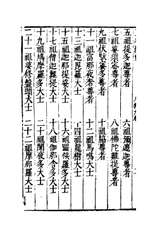 五祖提多迦尊者　六祖彌遮迦尊者
七祖婆須蜜尊者　八祖佛陀難提尊者
九祖伏馱蜜多尊者　十祖脇尊者
十一祖富那夜奢尊者　十二祖馬鳴大士
十三祖迦毘羅大士　十四祖龍樹大士
十五祖迦那提婆大士　十六祖羅睺羅多大士
十七祖僧迦難提大士　十八祖伽耶舍多大士
十九祖鳩摩羅多大士　二十祖闍夜多大士
二十一祖婆修盤頭大士　二十二祖摩拏羅大士